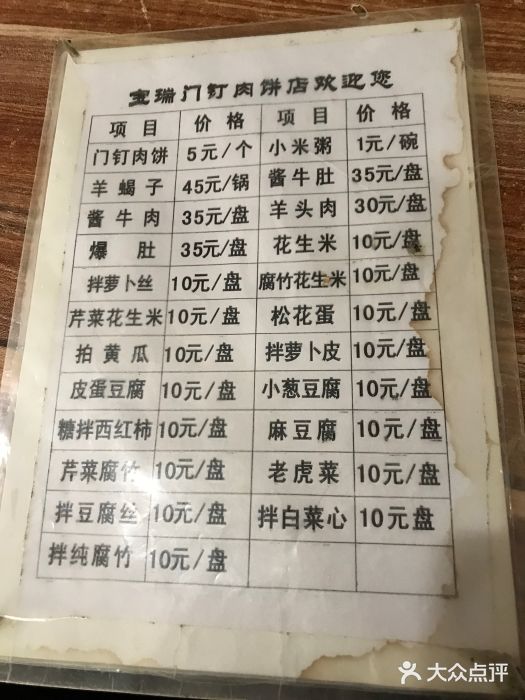 宝瑞门钉肉饼店欢迎您
项目 价格 项目 价格
门钉肉饼 5元/个 小米粥 1元/碗
羊蝎子 45元/锅 酱牛肚 35元/盘
酱牛肉 35元/盘 羊头肉 30元/盘
爆肚 35元/盘 花生米 10元/盘
拌萝卜丝 10元/盘 腐竹花生米 10元/盘
芹菜花生米 10元/盘 松花蛋 10元/盘
拍黄瓜 10元/盘 拌萝卜皮 10元/盘
皮蛋豆腐 10元/盘 小葱豆腐 10元/盘
糖拌西红柿 10元/盘 麻豆腐 10元/盘
芹菜腐竹 10元/盘 老虎菜 10元/盘
拌豆腐丝 10元/盘 拌白菜心 10元/盘
拌纯腐竹 10元/盘
大众点评